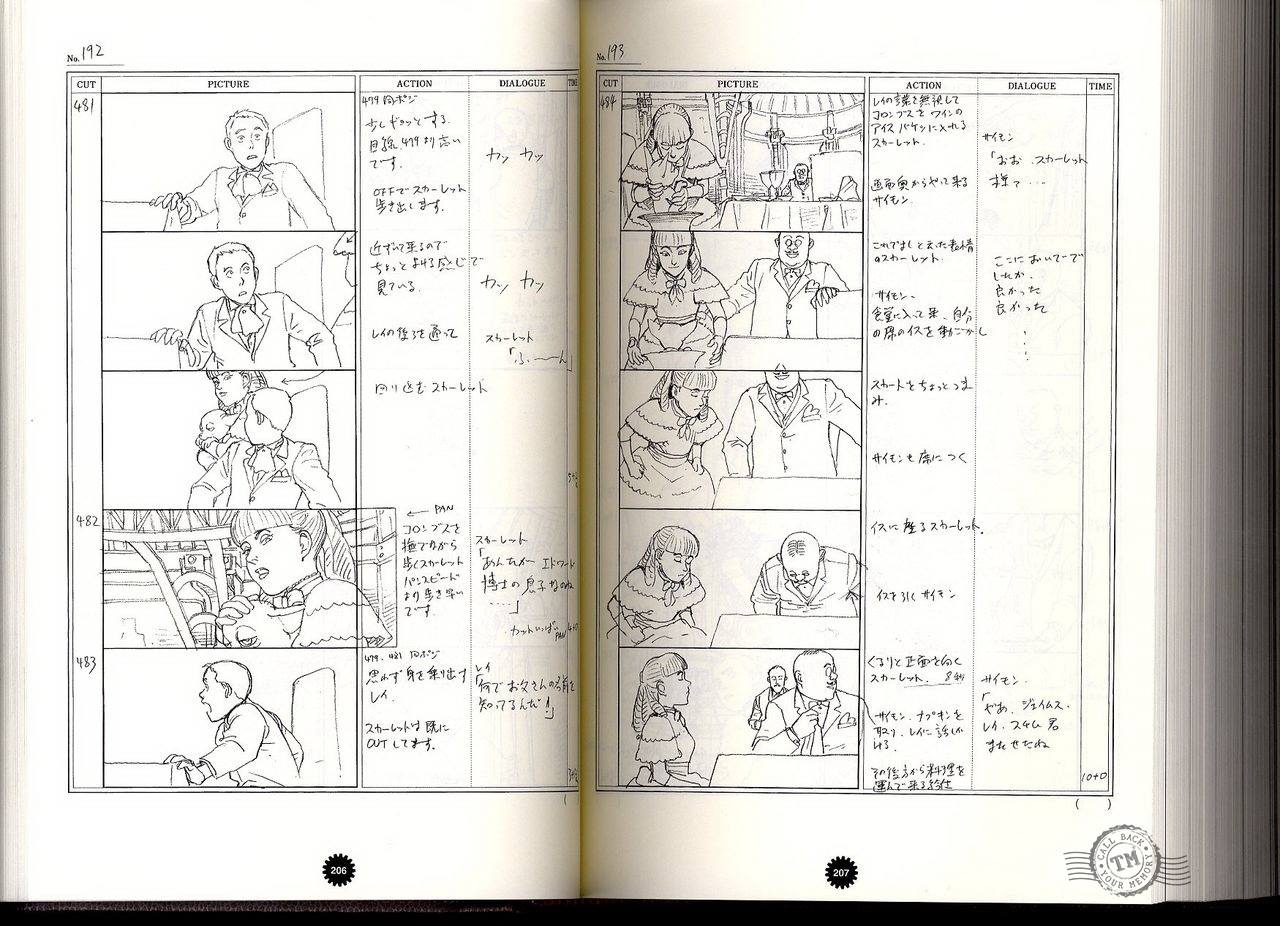 No. 192
CUT PICTURE ACTION DIALOGUE TIME
481
479 同ポジ
少しギョッとする.
目線 479 より高い
です.
カッ カッ
OFFで スカーレット
歩き出します.
近ずいて来るので
ちょっと よける感じで
見ている.
カッ カッ
レイの後ろを通って
スカーレット
「ふ〜〜ん」
回り込む スカーレット
482
← PAN
コロンブスを
撫でながら
歩くスカーレット
パンスピード
より歩き早い
です.
スカーレット
「あんたが エドワード
博士の息子なのね
……」
カットいっぱい
PAN
483
479, 481 同ポジ
思わず身を乗り出す
レイ.
レイ
「何でお父さんの名前を
知ってるんだ!」
スカーレットは既に
OUTしてます.
206
No. 193
CUT PICTURE ACTION DIALOGUE TIME
484
レイの言葉を無視して
コロンブスを ワインの
アイスバケツに入れる
スカーレット.
画面奥からやって来る
サイモン.
サイモン
「おお、スカーレット
様っ…
これでよしと云った表情
のスカーレット.
サイモン、
食堂に入って来、自分
の席のイスを動かし
ここにおいでで
したか.
良かった
良かった
スカートをちょっとつま
み.
サイモンも席につく
イスに座るスカーレット.
イスを引くサイモン
くるりと正面を向く
スカーレット.
サイモン、ナプキンを
取り、レイに話しか
ける.
その後方から料理を
運んで来る給仕
サイモン.
「やあ、ジェイムス.
レイ.スチム君
またせたね
10+0
( )
207
CALL BACK
TM
YOUR MEMORY